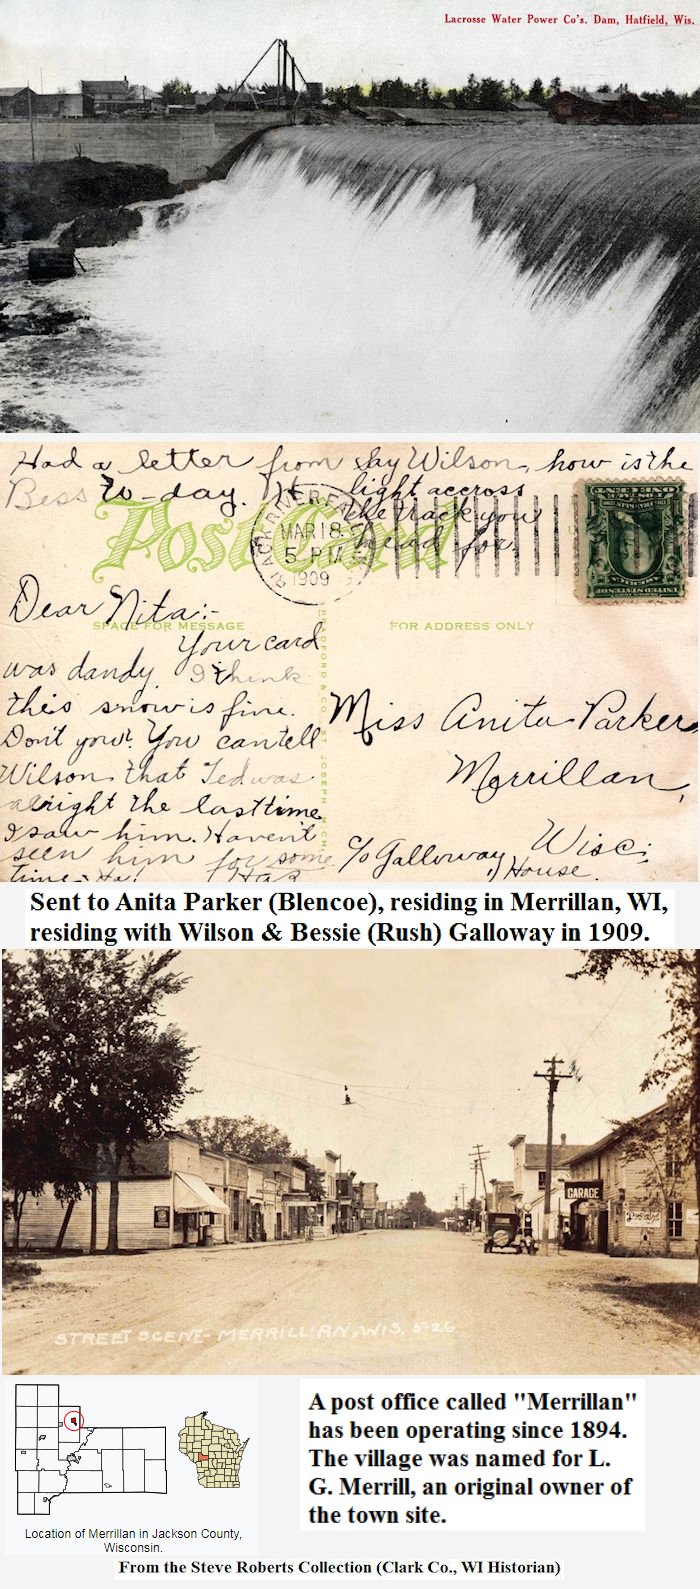 Lacrosse Water Power Co's. Dam, Hatfield, Wis.
Had a letter from Fay Wilson, how is the
Bess to-day. light accross
the track you
head for.
Post Card
BLACK RIVER FALLS
MAR 18
5 PM
1909
Dear Nita:-
SPACE FOR MESSAGE
FOR ADDRESS ONLY
Your card
was dandy I think
this snow is fine.
Don't you? You can tell
Wilson that Ted was
alright the last time
I saw him. Haven't
seen him for some
time. Ha!
BRADFORD & CO. ST. JOSEPH, MICH.
Miss Anita Parker
Merrillan,
Wisc.
c/o Galloway House.
UNITED STATES OF AMERICA
Sent to Anita Parker (Blencoe), residing in Merrillan, WI,
residing with Wilson & Bessie (Rush) Galloway in 1909.
GARAGE
STREET SCENE - MERRILLAN, WIS. 5-26
Location of Merrillan in Jackson County,
Wisconsin.
A post office called "Merrillan"
has been operating since 1894.
The village was named for L.
G. Merrill, an original owner of
the town site.
From the Steve Roberts Collection (Clark Co., WI Historian)